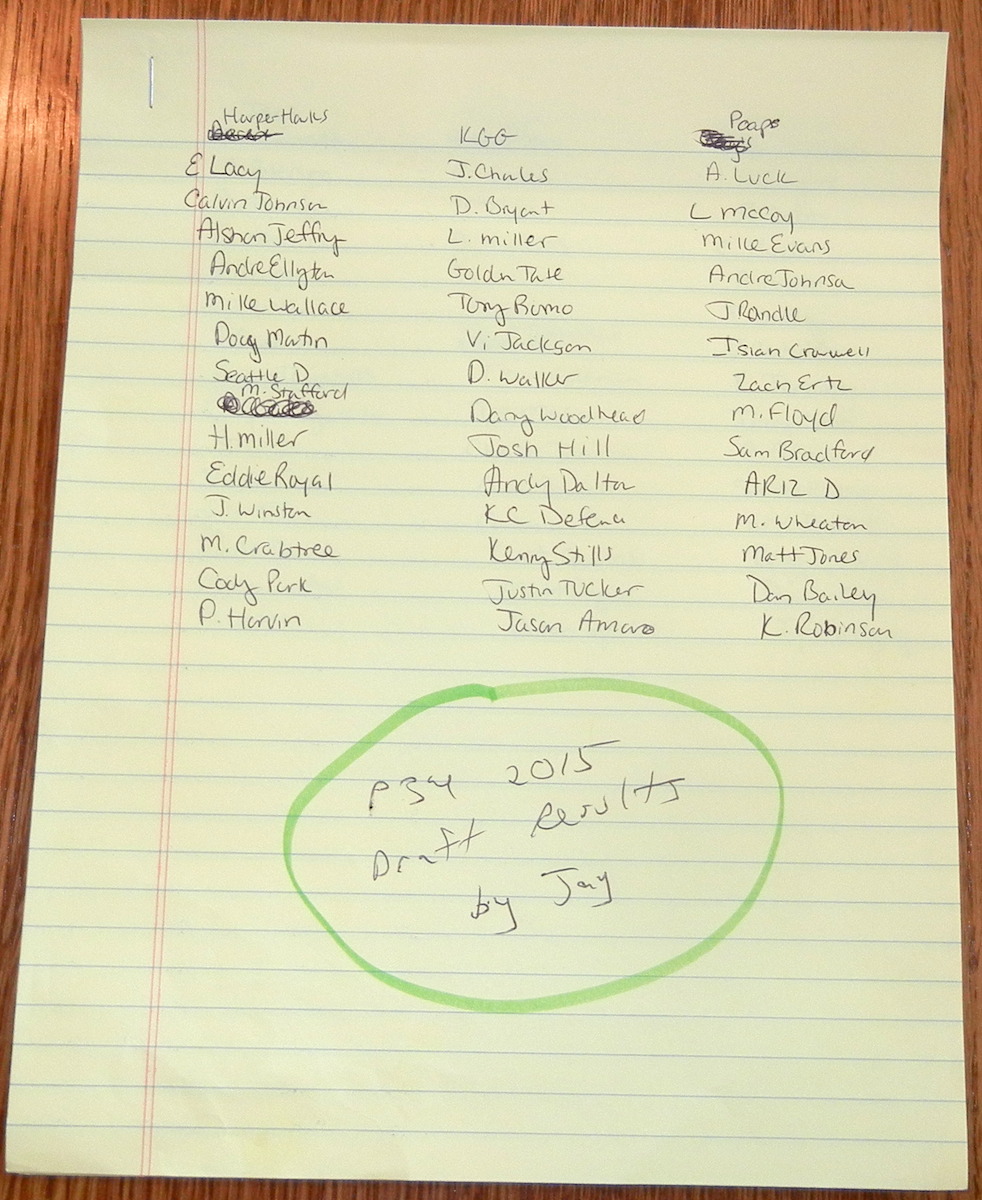 Harper Hawks KGG Poops
E Lacy J. Charles A. Luck
Calvin Johnson D. Bryant L McCoy
Alshon Jeffry L. miller Mike Evans
Andre Ellyton Golden Tate Andre Johnson
Mike Wallace Tony Romo J Randle
Doug Martin V. Jackson Isian Crowwell
Seattle D D. Walker Zach Ertz
M. Stafford Dany Woodhead M. Floyd
H. miller Josh Hill Sam Bradford
Eddie Royal Andy Dalton ARIZ D
J. Winston KC Defence M. Wheaton
M. Crabtree Kenny Stills Matt Jones
Cody Park Justin Tucker Dan Bailey
P. Harvin Jason Amaro K. Robinson
P34 2015
Draft Results
by Jay